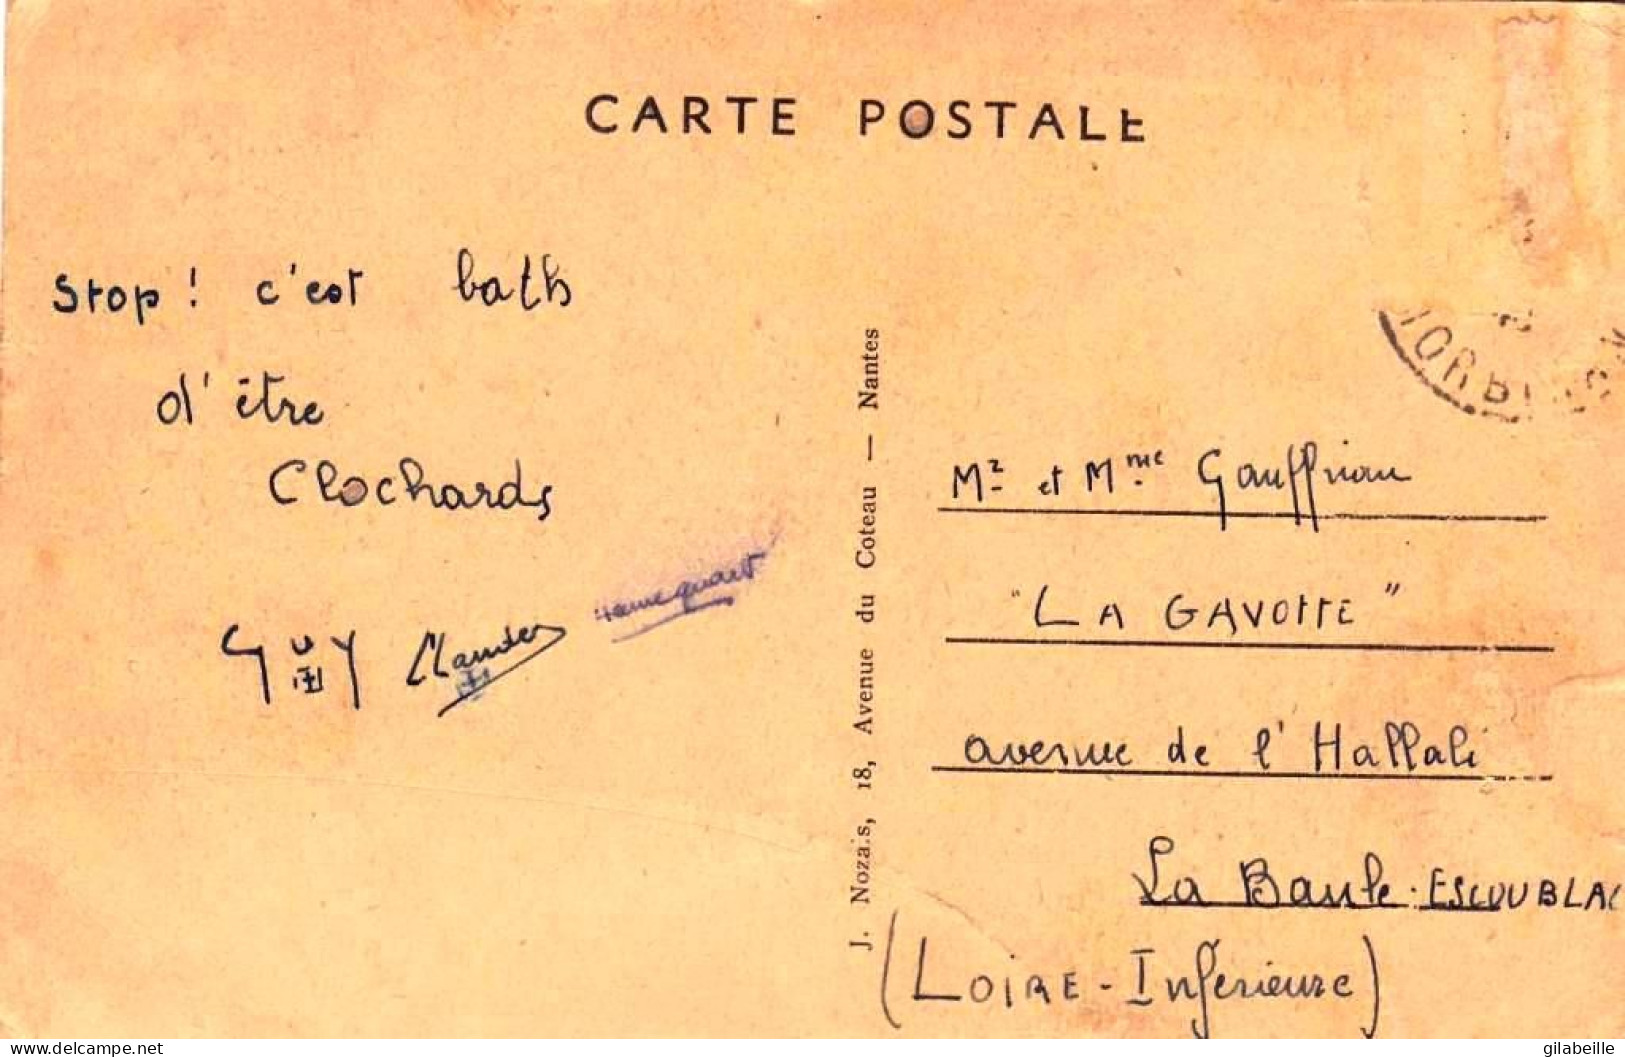 CARTE POSTALE
Stop ! c'est bath
d'être
Clochards
GUY
J. Nozais, 18, Avenue du Coteau — Nantes
Mr et Mme Gauffriau
"LA GAVOTTE"
avenue de l'Hallali
La Baule - ESCOUBLAC
(LOIRE-Inférieure)
www.delcampe.net
gilabeille